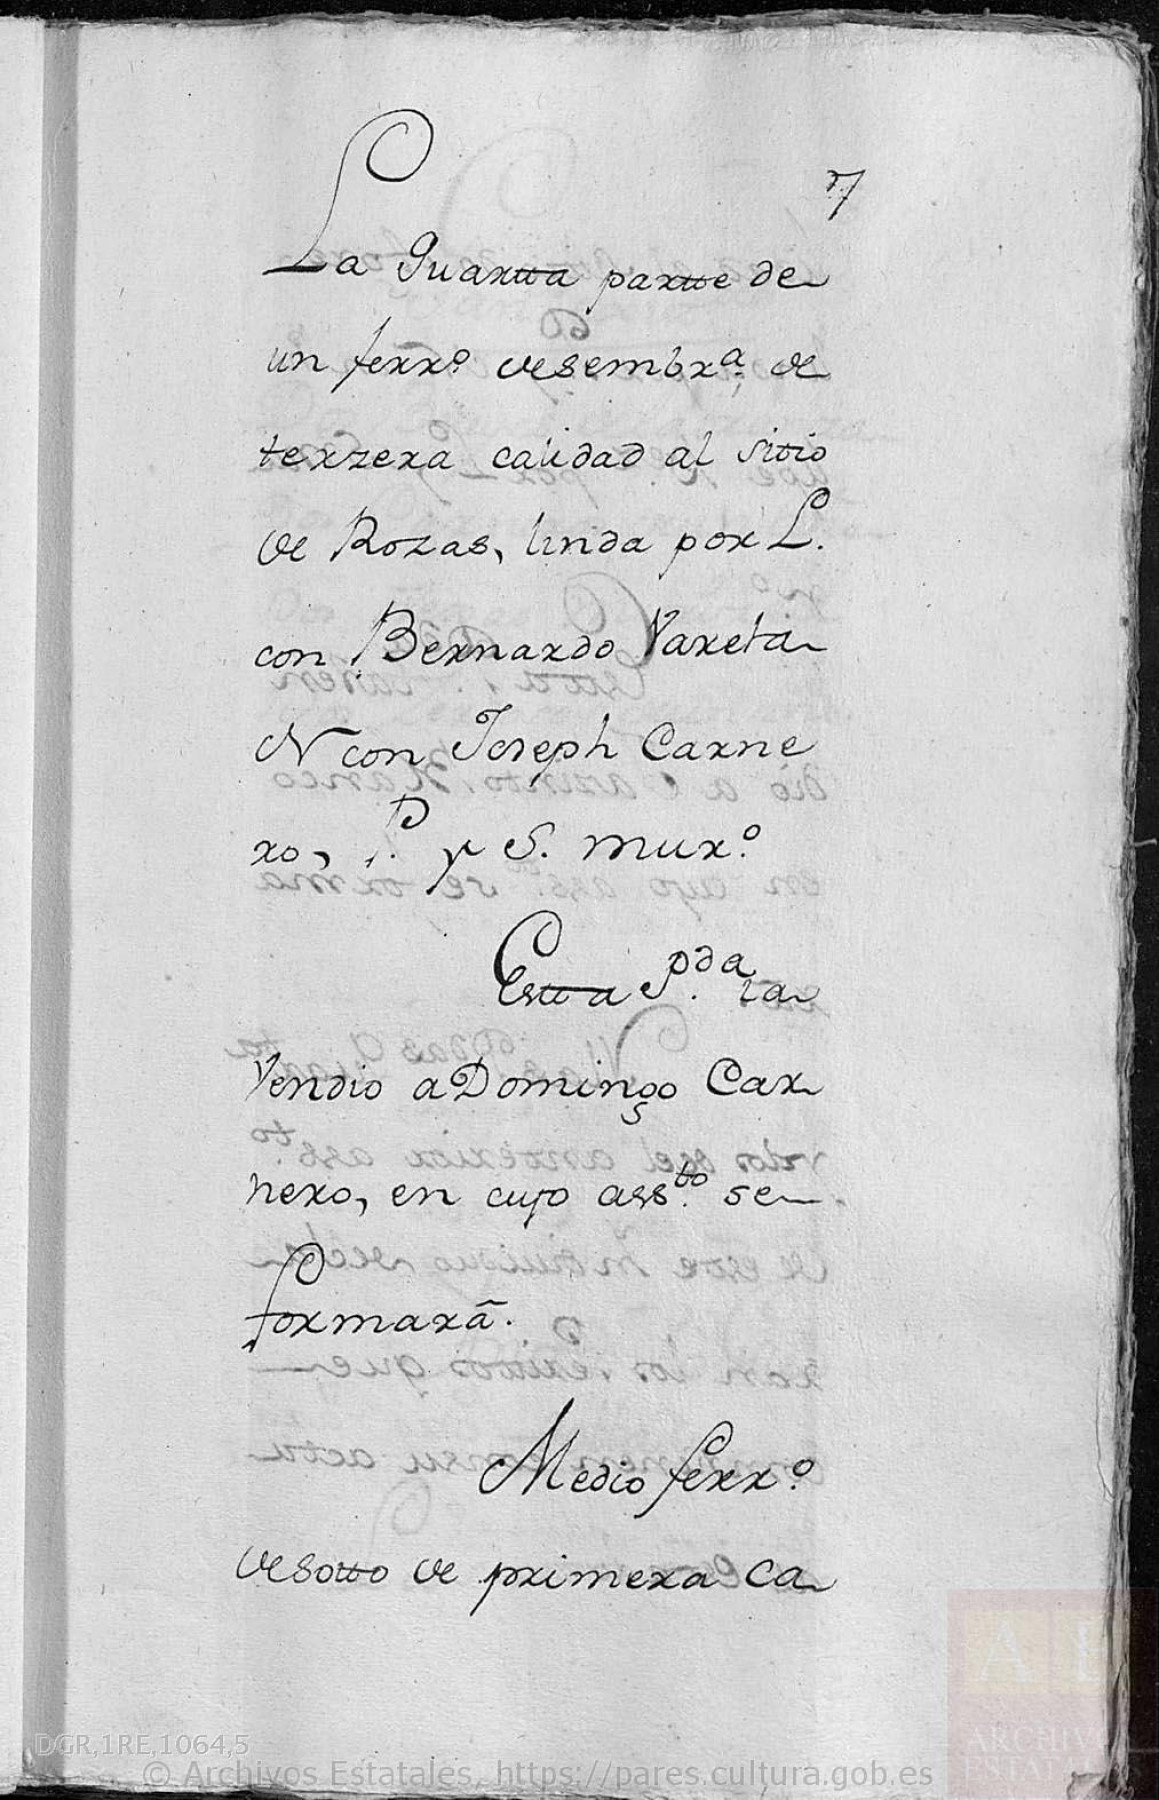 7
La Quartta partte de
un ferr.º de sembr.ª de
terzera calidad al sitio
de Rozas, linda por L.
con Bernardo Varela
N con Joseph Carne
ro, P. y S. mur.º
Estta P.da la
Vendio a Domingo Car
nero, en cuyo ass.to se
formarâ.
Medio ferr.º
de sotto de primera ca
DGR,1RE,1064,5
© Archivos Estatales, https://pares.cultura.gob.es